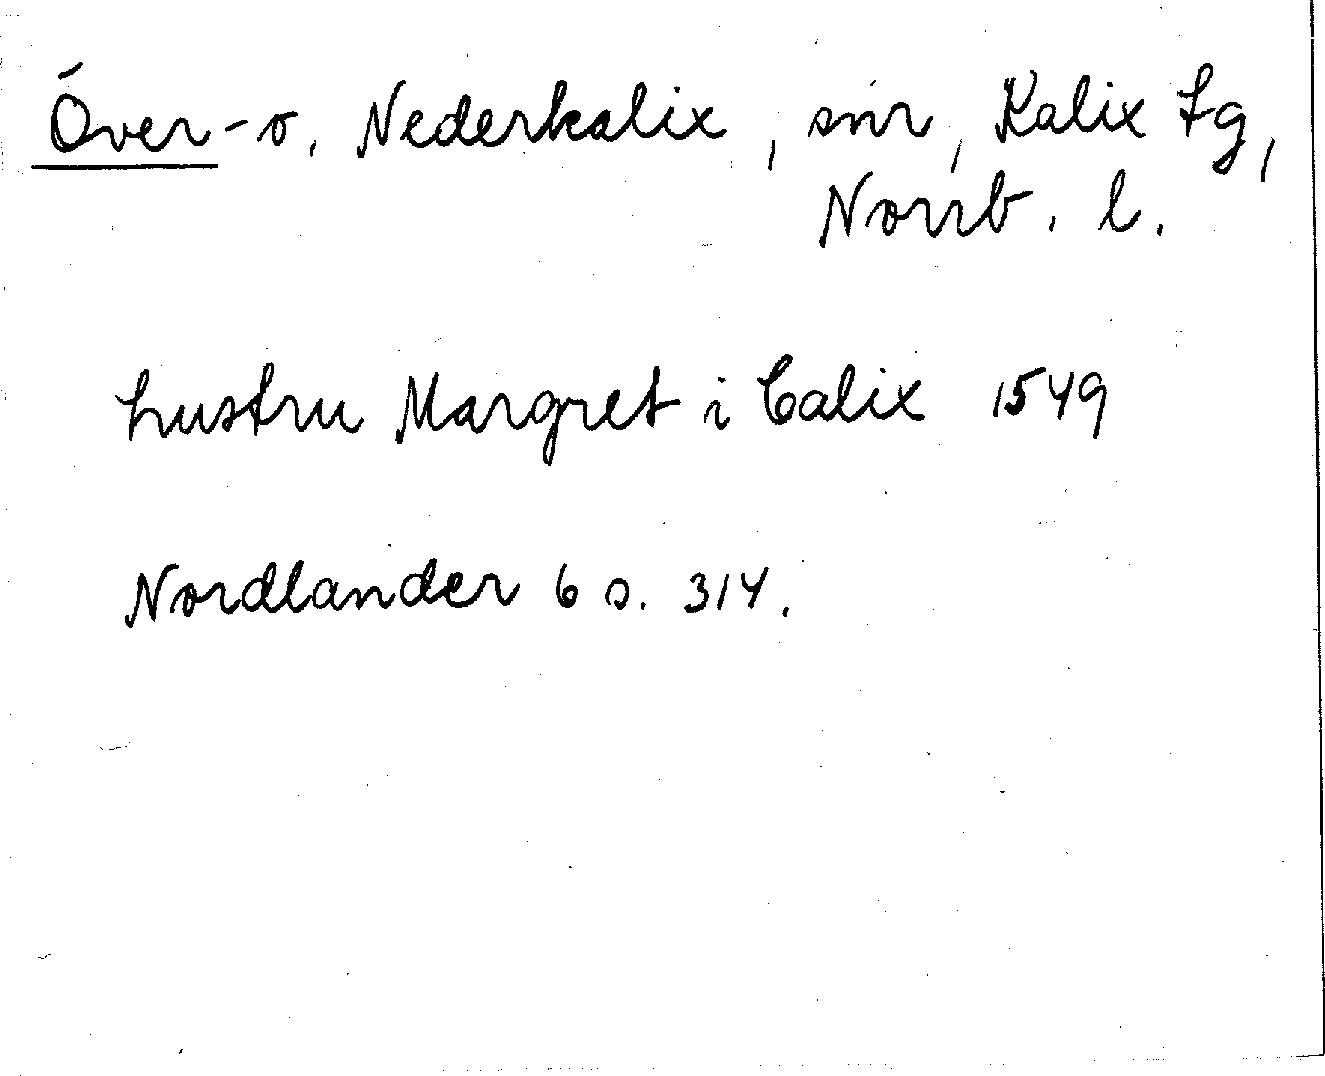 Över- o. Nederkalix, snr, Kalix tg,
Norrb. l.
hustru Margret i Calix 1549
Nordlander 6 s. 314.